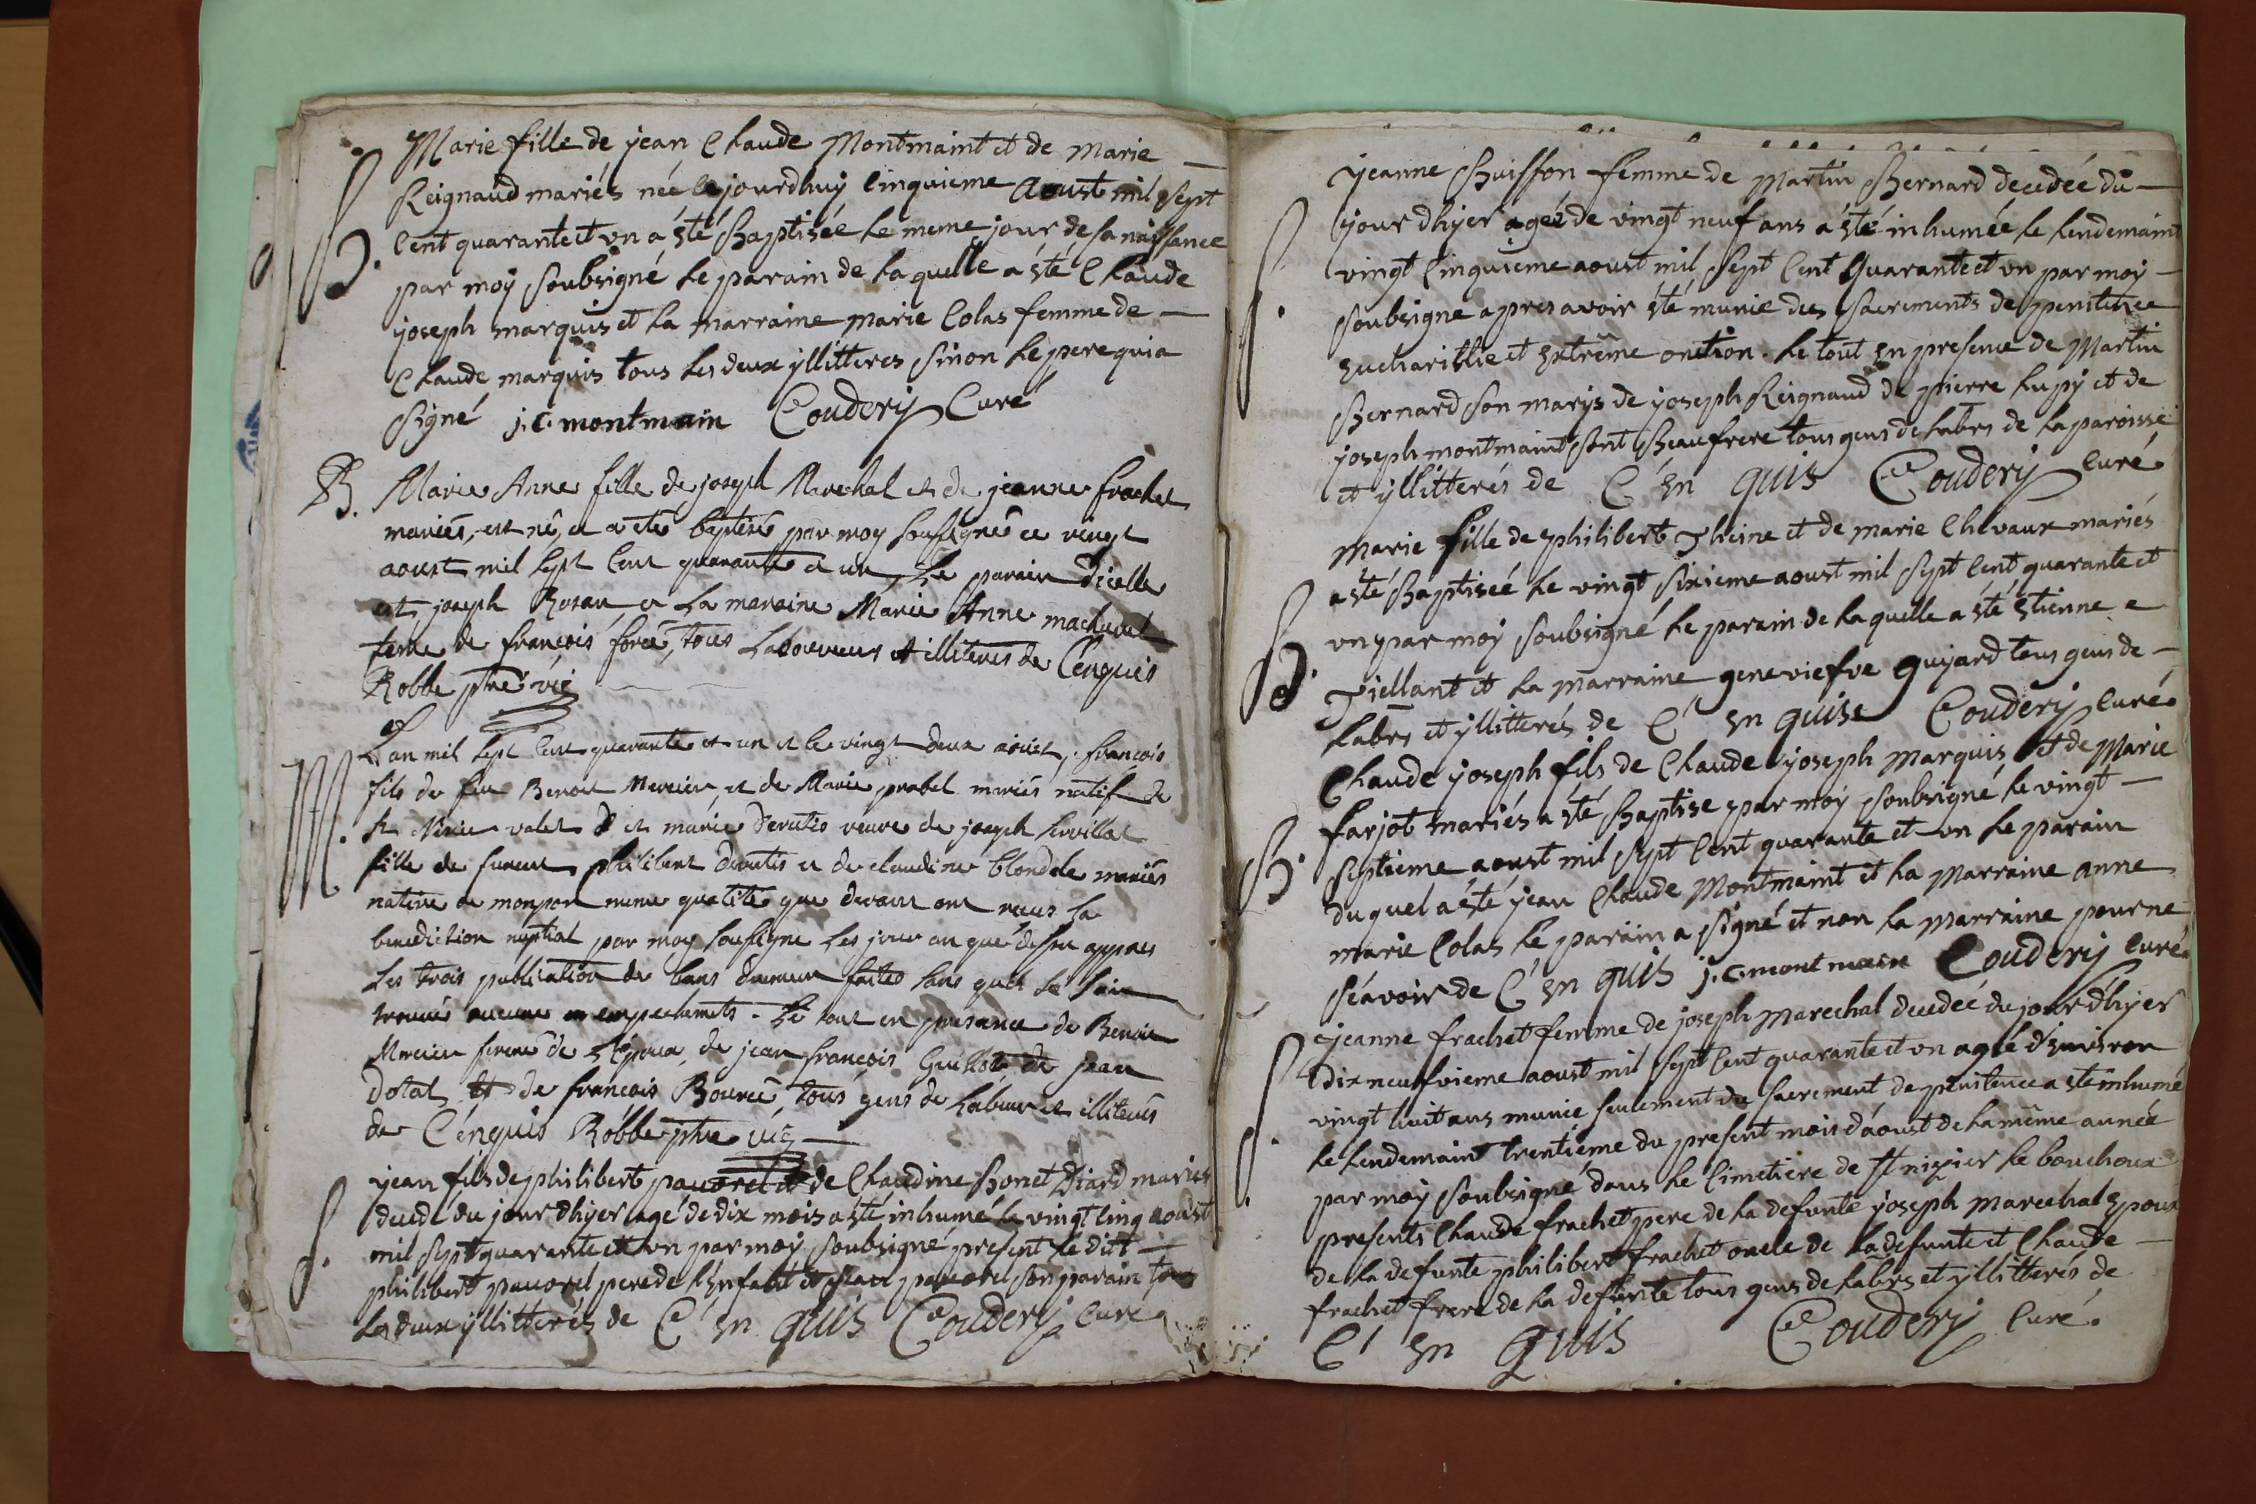 Marie fille de jean Claude Montmaint et de marie
Reignaud mariés née le jourdhuy cinquieme Aoust mil sept
B. cent quarante et un a été Baptisée le meme jour de sa naissance
par moy soubsigné le parain de la quelle a sté Claude
joseph marquis et la marraine marie Colas femme de
Claude marquis tous les deux yllitteres sinon le pere qui a
signé j. c. montmain Coudery Curé
B. Marie Anne fille de joseph Marechal et de jeanne frachet
mariés, est né, et a eté baptisé par moy soussigné ce vingt
aoust mil sept cent quarante et un, Le parain dicelle
est joseph Rozan et La maraine Marie Anne machurat
feme de francois forée, tous Laboureurs et illiteres de Cenquis
Robbe ptre vic
L'an mil sept cent quarante et un et le vingt deux aoust, francois
fils de feu Benoit Mercier et de Marie prabel mariés natif de
M. St Nizier valet et marie Deretis veuve de joseph
fille de furent philibert deretis et de claudine blondele mariés
native de monpon meme qualité que devant ont receus la
benediction nuptial par moy soussigne les jour an que dessu appres
Les trois publication de bans duement faites sans quil se soit
trouvé aucune empechemts. Le tout en presance de Benoit
Mercier frere de L'Epoux, de jean francois Guillot de jean
dotal et de francois Bourcé tous gens de Labeur et illiterés
de Cenquis Robbe ptre vic
jean fils de philibert pauvret et de Claudine Bonet Diard maries
decedé du jour dhyer agé de dix mois a sté inhumé le vingt cinq aoust
S. mil sept quarante et un par moy soubsigné present le dit
philibert pauvret pere de l'enfant et jean pauvret son parain tous
les deux yllitterés de C' en quis Coudery Curé
jeanne Buisson femme de Martin Bernard decedée du
jour dhyer agéé de vingt neuf ans a sté inhumée le lendemaint
S. vingt cinquieme aoust mil sept cent quarante et un par moy
soubsigne apres avoir sté munie des sacrements de penitence
eucharistie et extrême onction. Le tout en presence de Martin
Bernard son marys de joseph Reignaud de pierre lupy et de
joseph montmaint sont Beaufrere tous gens de labrs de la paroisse
et yllitterés de C' en quis Coudery Curé
marie fille de philibert Theine et de marie Chevaux mariés
a sté Baptiseé le vingt sixieme aoust mil sept cent quarante et
B. un par moy soubsigné le parain de la quelle a sté Etienne
Viellant et la marraine geneviefve guyard tous gens de
labrs et yllitterés de C' en quise Coudery Curé
Claude joseph fils de Claude joseph marquis et de Marie
farjot mariés a sté Baptise par moy soubsigné le vingt
B. septieme aoust mil sept cent quarante et un le parain
du quel a été jean Claude Montmaint et la Marraine anne
marie Colas le parain a signé et non la marraine pour ne
sçavoir de C' en quis j. c. montmain Coudery Curé
jeanne frachet femme de joseph Marechal decedeé du jour d'hyer
dix neufvieme aoust mil sept cent quarante et un agéé d'environ
S. vingt huit ans munie seulement du sacrement de penitence a sté inhumé
le lendemaint trentieme du present mois d'aoust de la même année
par moy soubsigné dans le Cimetiere de St nizier le bouchoux
presents Claude frachet pere de la defunte joseph marechal epoux
de la defunte philibert frachet oncle de la defunte et Claude
frachet frere de la defunte tous gens de labrs et yllitterés de
C' en quis Coudery Curé.